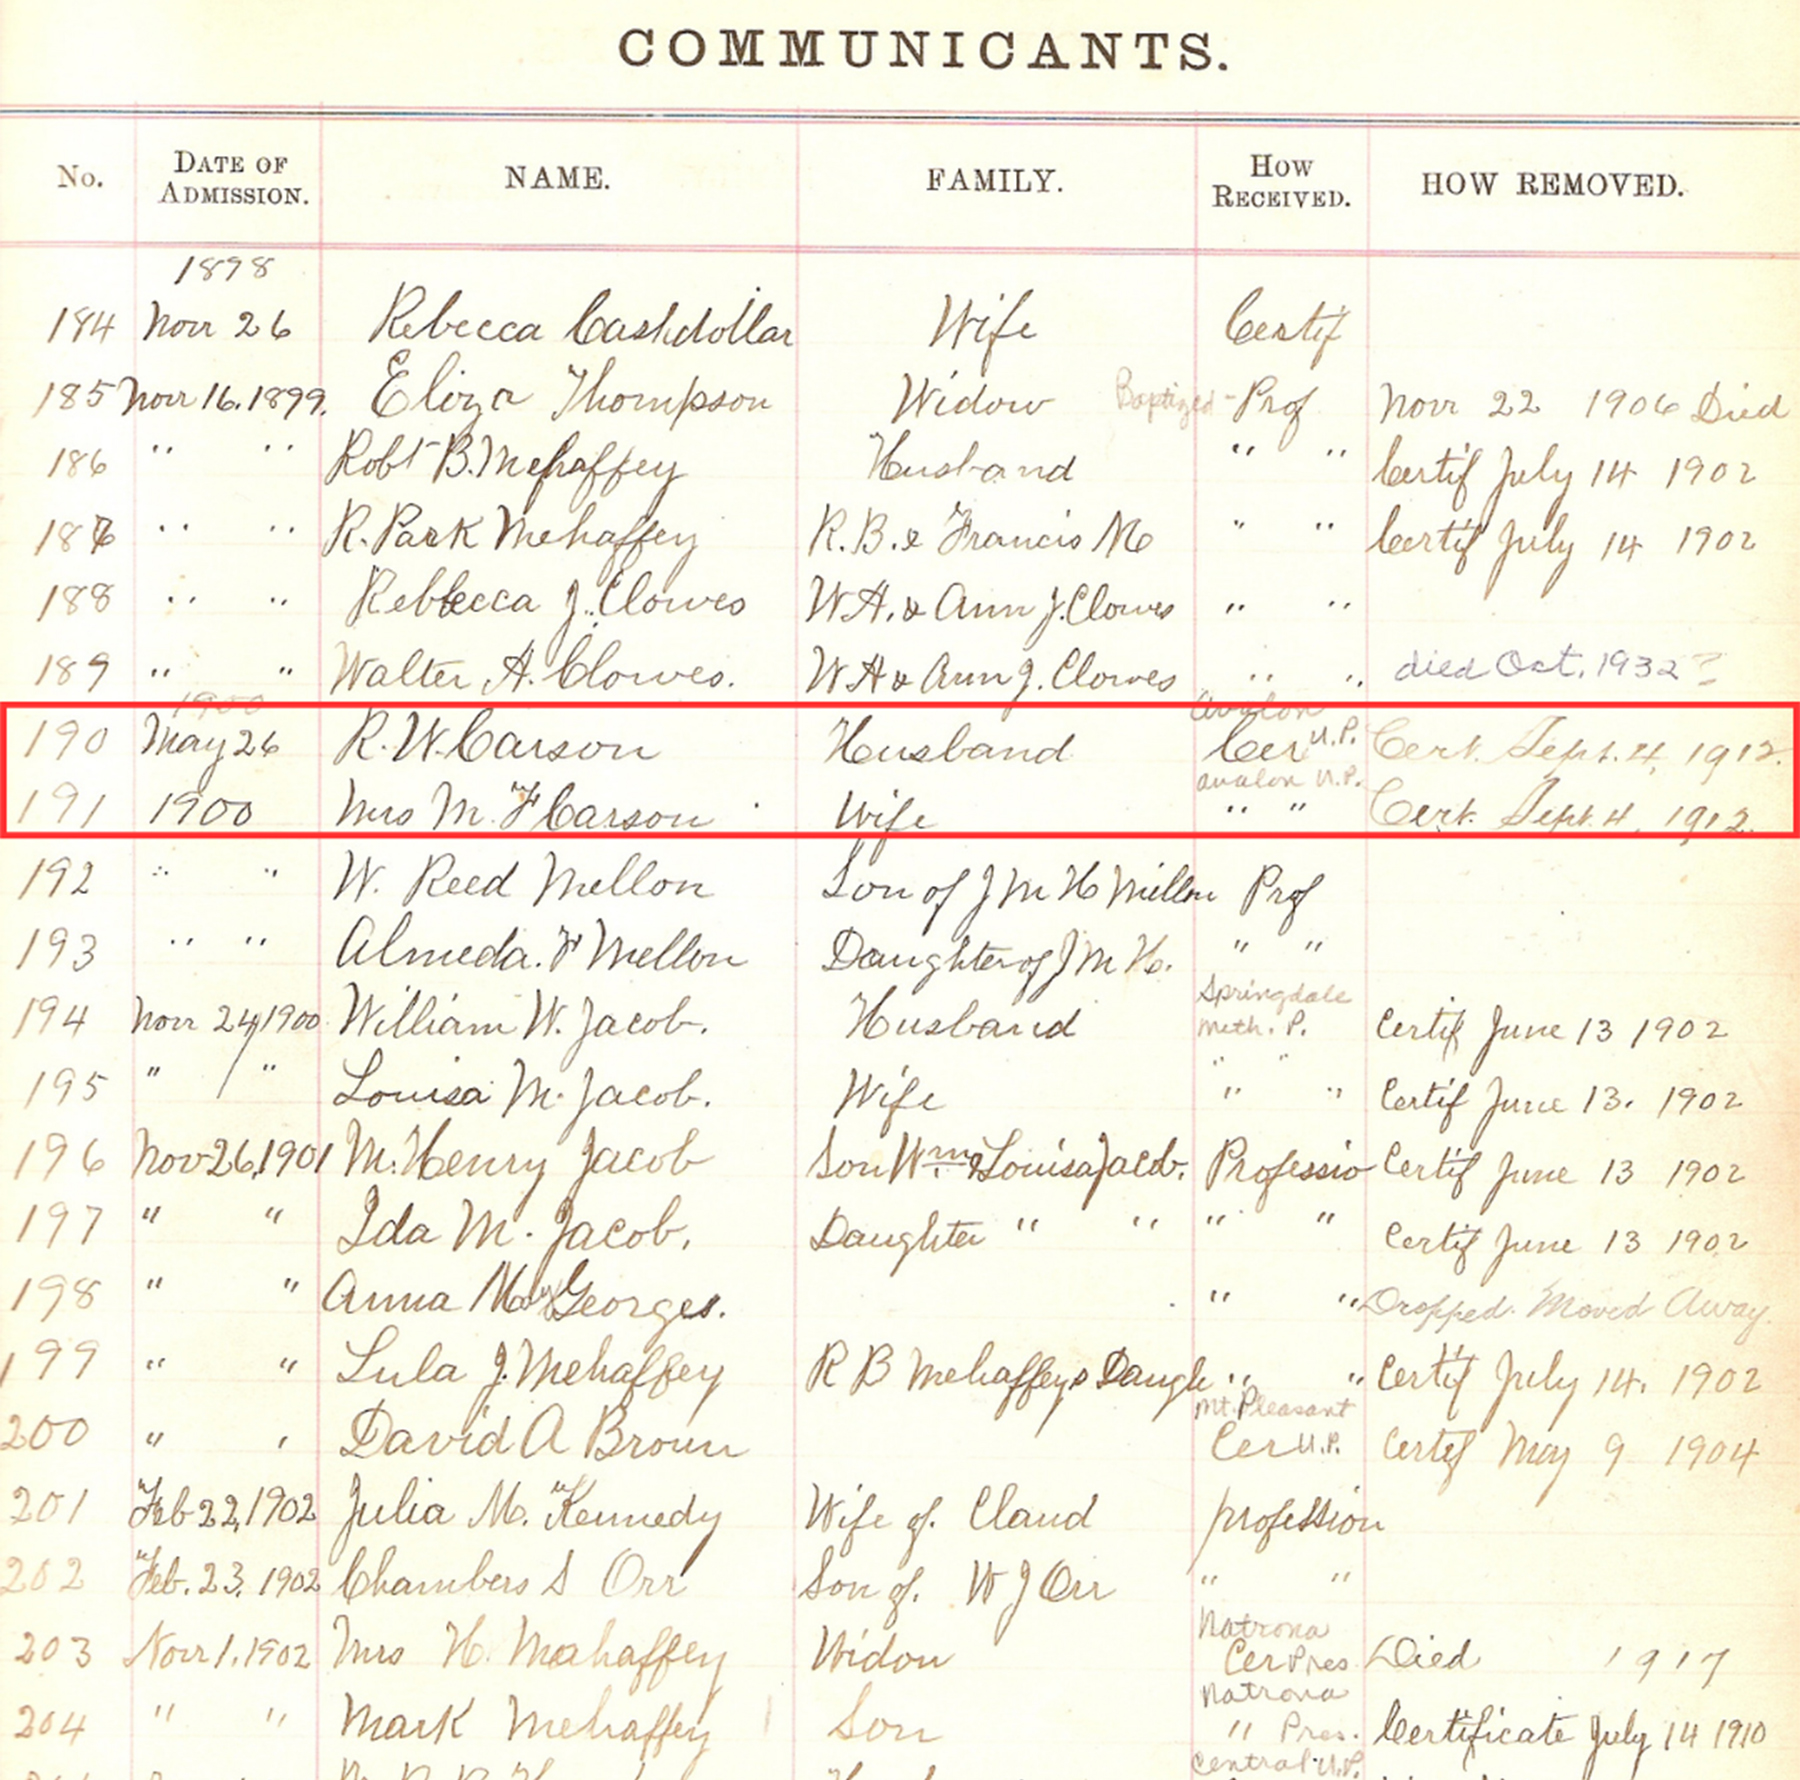 COMMUNICANTS.
No. DATE OF ADMISSION. NAME. FAMILY. HOW RECEIVED. HOW REMOVED.
1898
184 Nov 26 Rebecca Cashdollar Wife Certif
185 Nov 16. 1899. Eliza Thompson Widow Baptized - Prof Nov 22 1906 Died
186 " " Robt B. Mehaffey Husband " " Certif July 14 1902
187 " " R. Park Mehaffey R. B. & Francis M " " Certif July 14 1902
188 " " Rebecca J. Clowes W. H. & Ann J. Clowes " "
189 " " Walter A. Clowes. W H & Ann J. Clowes " " died Oct. 1932 ?
1900 Avalon
190 May 26 R. W. Carson Husband Cer U.P. Cert. Sept. 4, 1912.
Avalon U.P.
191 1900 Mrs M. F Carson Wife " " Cert. Sept. 4, 1912.
192 " " W. Reed Mellon Son of J M H Mellon Prof
193 " " Almeda. F Mellon Daughter of J M H. " "
Springdale
194 Nov 24, 1900 William W. Jacob. Husband Meth. P. Certif June 13 1902
" "
195 " " Louisa M. Jacob. Wife " " Certif June 13. 1902
196 Nov 26, 1901 M. Henry Jacob Son Wm & Louisa Jacob. Professio Certif June 13 1902
197 " " Ida M. Jacob. Daughter " " " " Certif June 13 1902
198 " " Anna May Georges. " " Dropped. Moved Away.
199 " " Lula J. Mehaffey R B Mehaffeys Daugh " " Certif July 14. 1902
Mt. Pleasant
200 " " David A Brown Cer U.P. Certif May 9 1904
201 Feb 22, 1902 Julia M. Kennedy Wife of. Claud profession
202 Feb. 23. 1902 Chambers S Orr Son of. W J Orr " "
Natrona
203 Nov 1. 1902 Mrs H. Mahaffey Widow Cer Pres Died 1917
Natrona
204 " " Mark Mehaffey Son " Pres. Certificate July 14 1910
Central U.P.